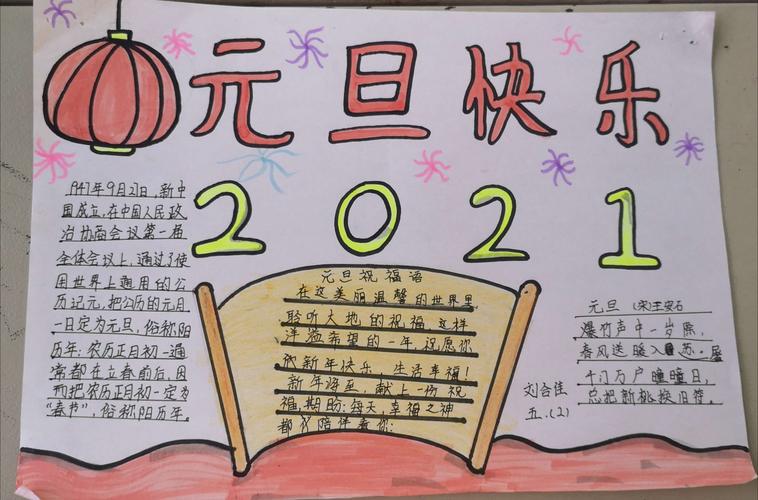 元旦快乐
2021
1947年9月27日,新中
国成立,在中国人民政
治协商会议第一届
全体会议上,通过了使
用世界上通用的公
历记元,把公历的元月
一日定为元旦,俗称阳
历年;农历正月初一通
常都在立春前后,因
而把农历正月初一定为
“春节”,俗称阳历年.
元旦祝福语
在这美丽温馨的世界里
聆听大地的祝福,这样
洋溢希望的一年,祝愿你
们新年快乐,生活幸福!
新年将至,献上一份祝
福,期盼:每天,幸福之神
都们陪伴着你:
元旦 (宋)王安石
爆竹声中一岁除,
春风送暖入屠苏.
千门万户曈曈日,
总把新桃换旧符.
刘合佳
五.(2)